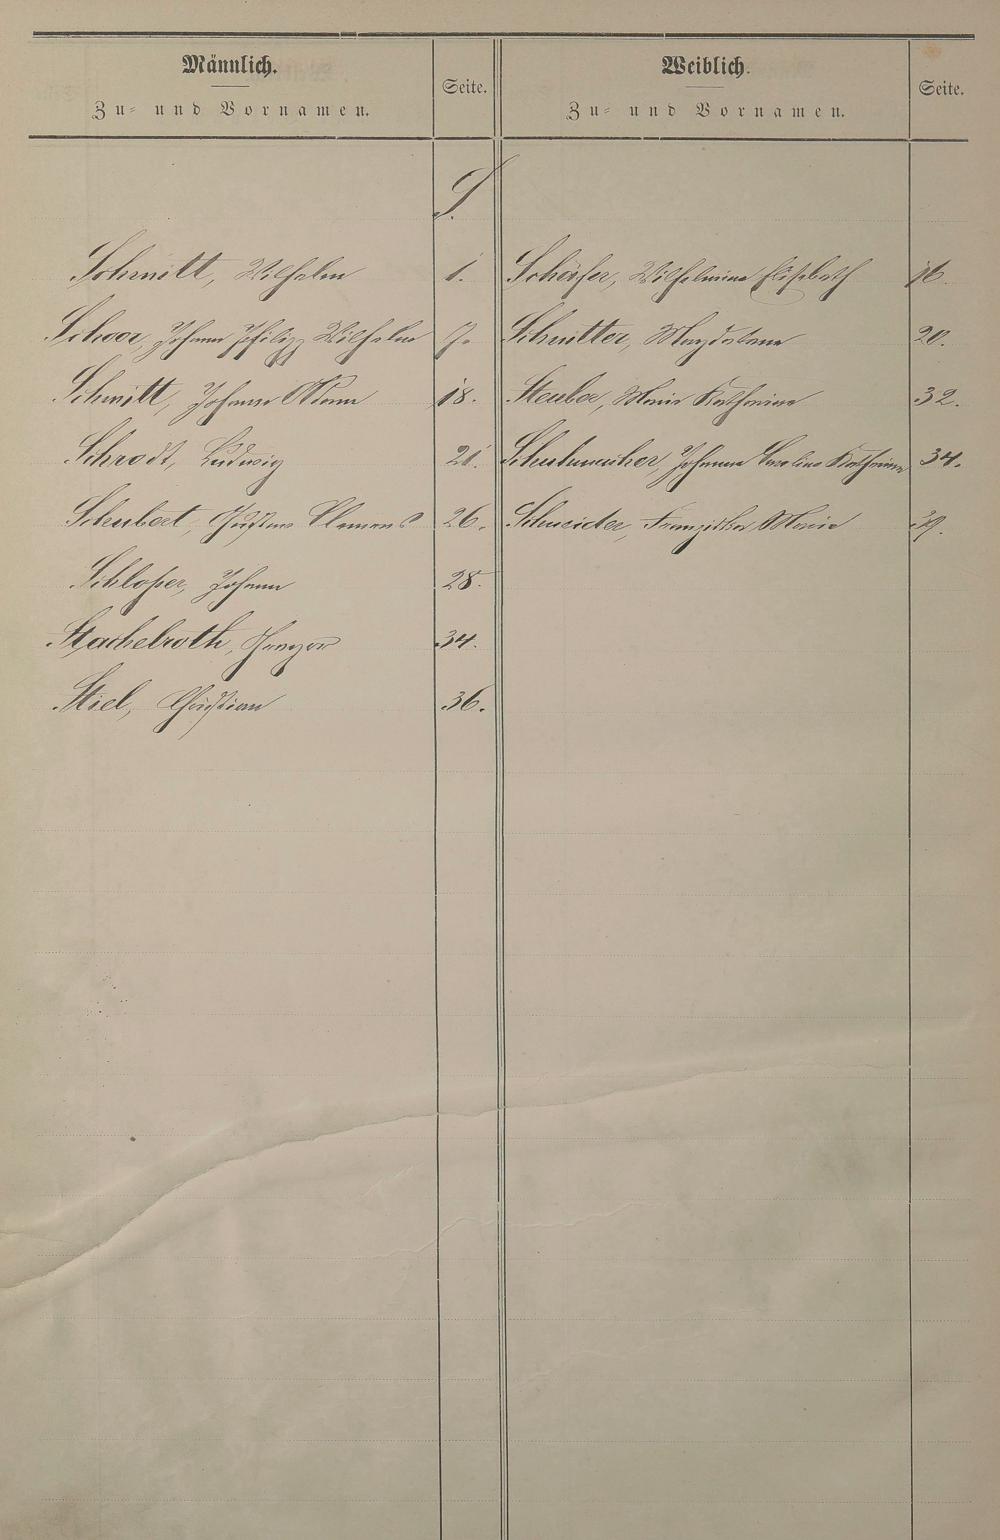 Männlich.
Zu- und Vornamen.
Seite.
Weiblich.
Zu- und Vornamen.
Seite.
S.
Schmitt, Wilhelm 1. Schäfer, Wilhelmine Elisabeth 16.
Schoor, Johann Philipp Wilhelm 7. Schnitter, Magdalena 20.
Schmitt, Johann Adam 18. Steuber, Maria Katharina 32.
Schrodt, Ludwig 21. Schuhmacher, Johanna Carolina Katharina 34.
Schubert, Gustav Clemens 26. Schneider, Franziska Maria 39.
Schlosser, Johann 28.
Stachelroth, 34.
Stiel, Christian 36.